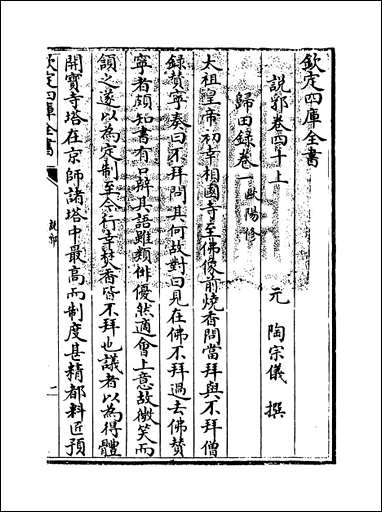 欽定四庫全書
說郛卷四十上
元 陶宗儀 撰
歸田錄卷一 歐陽修
太祖皇帝初幸相國寺至佛像前燒香問當拜與不拜僧
録賛寧奏曰不拜問其何故對曰見在佛不拜過去佛賛
寧者頗知書有口辯其語雖類俳優然適會上意故微笑而
頷之遂以為定制至今行幸焚香皆不拜也議者以為得體
開寶寺塔在京師諸塔中最高而制度甚精都料匠預
欽定四庫全書
說郛
一